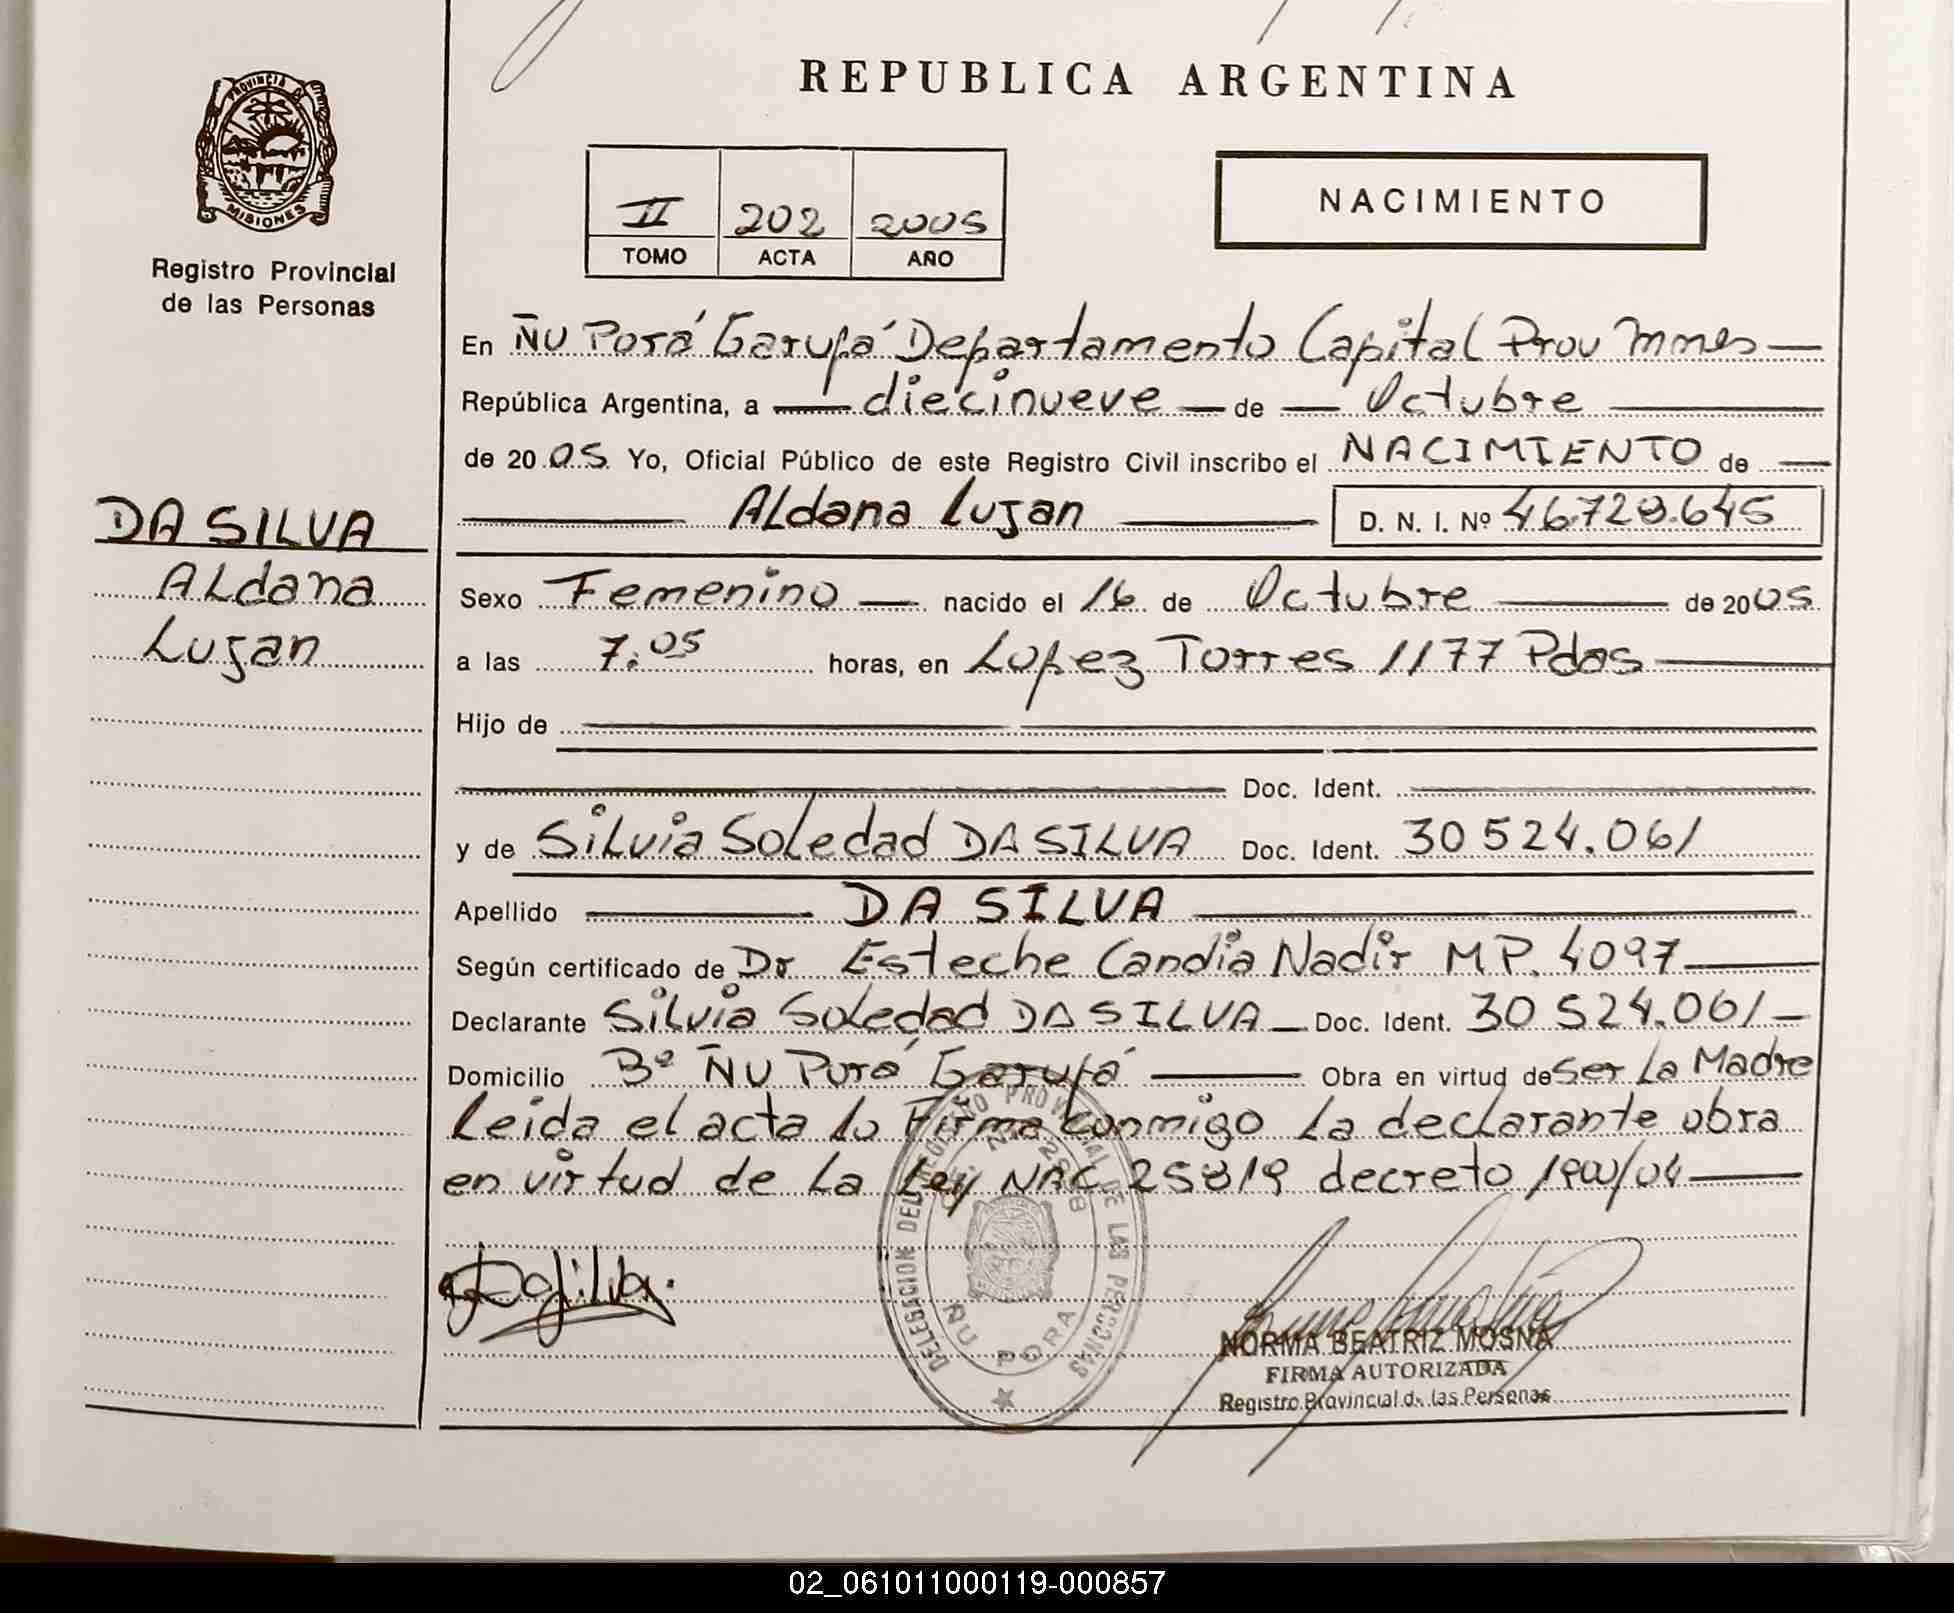 REPUBLICA ARGENTINA
PROVINCIA DE
MISIONES
Registro Provincial
de las Personas
II 202 2005
TOMO ACTA AÑO
NACIMIENTO
En Ñu Porá Garupá Departamento Capital Prov Mnes
República Argentina, a diecinueve de Octubre
de 2005 Yo, Oficial Público de este Registro Civil inscribo el NACIMIENTO de
Aldana Lujan D. N. I. Nº 46.728.645
DA SILVA
Aldana
Lujan
Sexo Femenino nacido el 16 de Octubre de 2005
a las 7:05 horas, en Lopez Torres 1177 Pdas
Hijo de
Doc. Ident.
y de Silvia Soledad DA SILVA Doc. Ident. 30 524.061
Apellido DA SILVA
Según certificado de Dr Esteche Candia Nadir MP. 4097
Declarante Silvia Soledad DA SILVA Doc. Ident. 30 524.061
Domicilio Bº Ñu Porá Garupá Obra en virtud de Ser La Madre
Leida el acta lo Firma conmigo La declarante obra
en virtud de La Ley NAC 25819 decreto 1900/04
DELEGACION DEL REGISTRO PROVINCIAL DE LAS PERSONAS
ÑU PORA
NORMA BEATRIZ MOSNA
FIRMA AUTORIZADA
Registro Provincial de las Personas
02_061011000119-000857